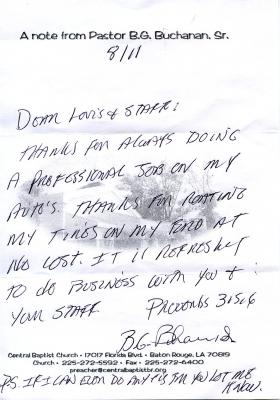 A note from Pastor B.G. Buchanan, Sr.
8/11
Dear Louis & Staff:
Thanks for always doing
a professional job on my
auto's. Thanks for rotating
my tires on my Ford at
no cost. It is refreshing
to do business with you &
your staff Proverbs 3:5&6
B.G. Buchanan
Central Baptist Church • 17017 Florida Blvd. • Baton Rouge, LA 70819
Church • 225-272-5592 • Fax • 225-272-6400
preacher@centralbaptistbr.org
P.S. If I can ever do anything for you let me
know.